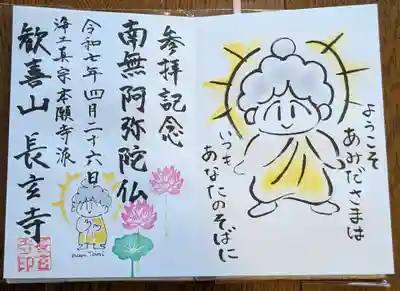 ようこそ
あみださまは
いつも
あなたのそばに
参拝記念
南無阿弥陀仏
令和七年四月二十六日
浄土真宗本願寺派
歓喜山長玄寺